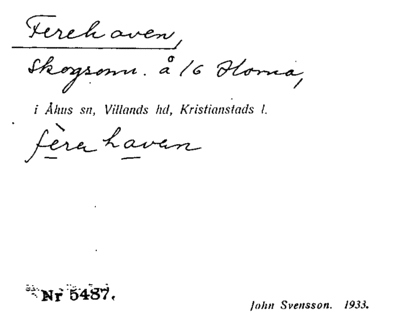 Ferehaven,
Skogsomr. å 16 Horna,
i Åhus sn, Villands hd, Kristianstads l.
fèrehaven
Nr 5487.
John Svensson. 1933.